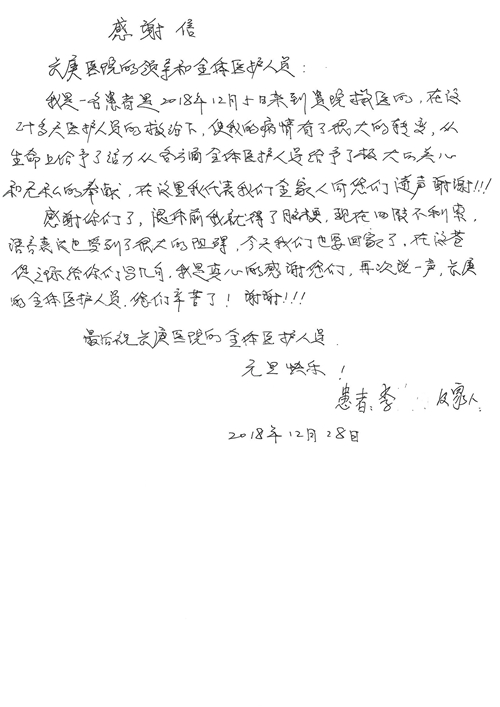 感谢信
长庚医院的领导和全体医护人员：
我是一名患者是2018年12月5日来到贵院救医的，在这
二十多天医护人员的救治下，使我的病情有了很大的转变，从
生命上给予了活力从各方面全体医护人员给予了极大的关心
和无私的奉献，在这里我代表我们全家人向您们道声谢谢!!!
感谢你们了，退休前我就得了脑梗，现在四肢不利索，
语言表达也受到了很大的阻碍，今天我们也要回家了，在这苍
促之际给你们写几句，我是真心的感谢您们，再次说一声，长庚
的全体医护人员，您们辛苦了！谢谢!!!
最后祝长庚医院的全体医护人员
元旦快乐！
患者：李 及家人
2018年12月28日